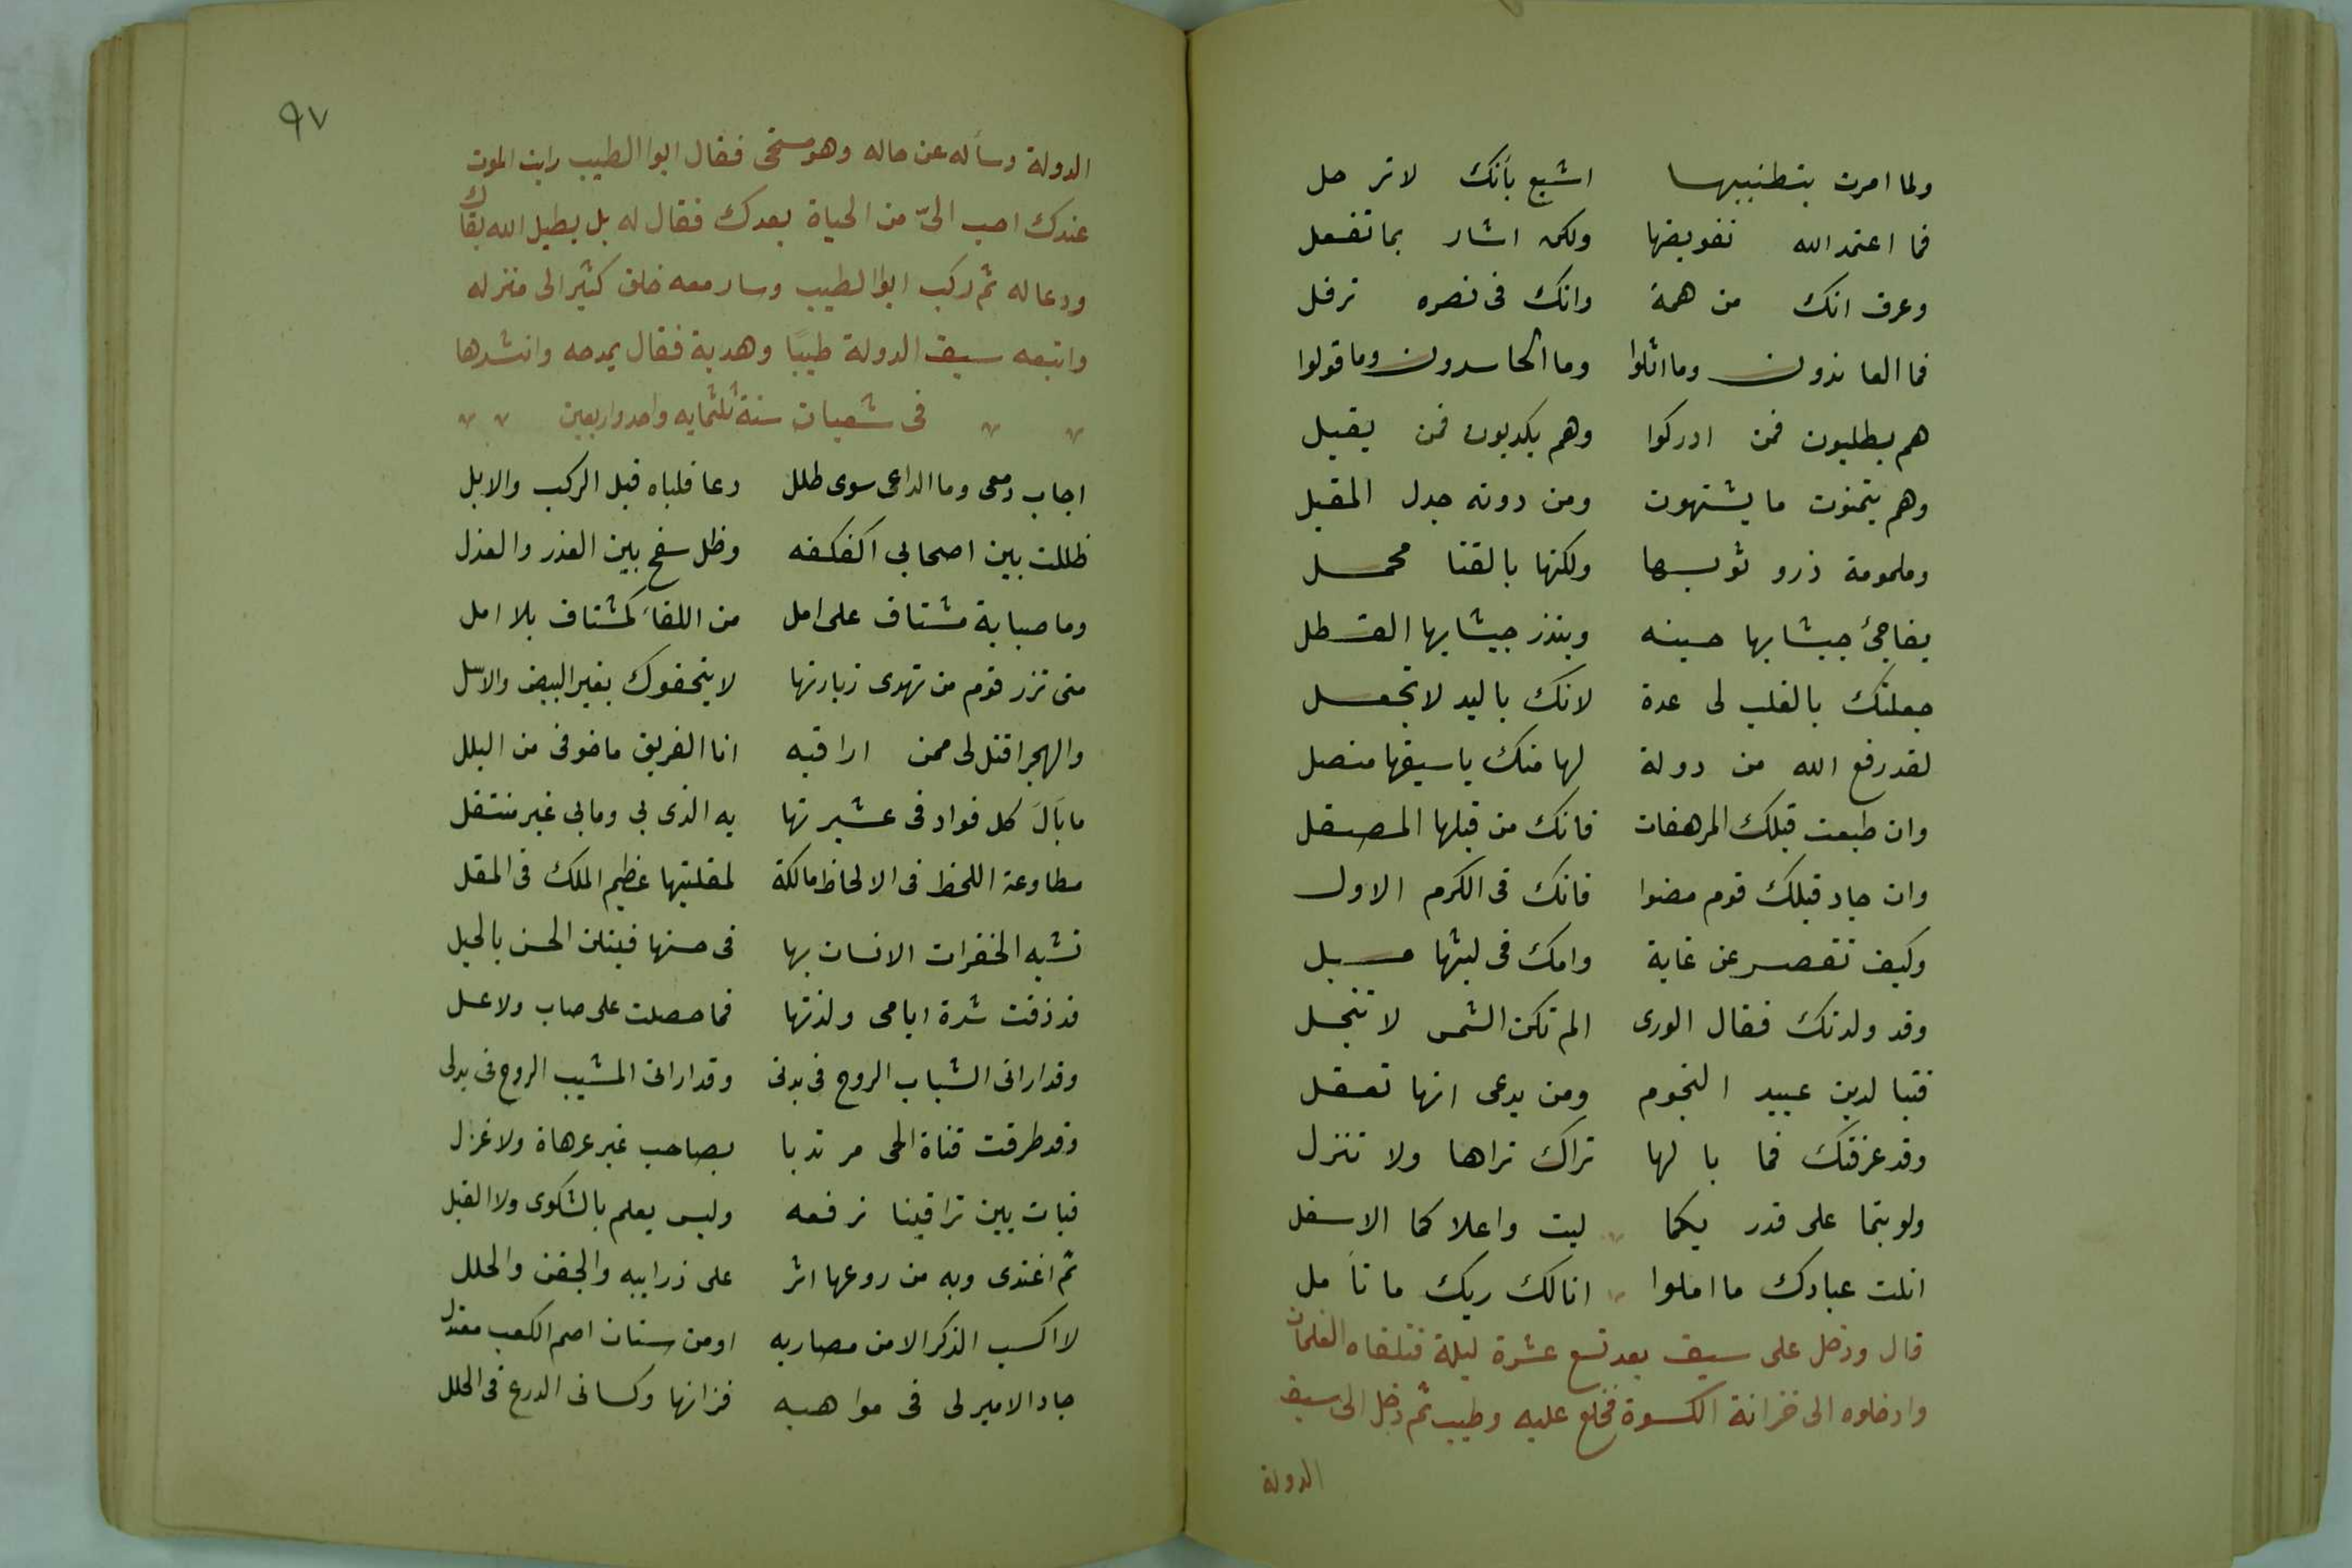 ولما امرت بتطنيبها اشيع بأنك لا ترحل
فما اعتمد الله تقويضها ولكن اشار بما تفعل
وعرف انك من همة وانك فى نصره ترفل
فما العاندون وما اثلوا وما الحاسدون وما قولوا
هم يطلبون فمن ادركوا وهم يكذبون فمن يقبل
وهم يتمنون ما يشتهون ومن دونه جدل المقبل
وملمومة زرد ثوبها ولكنها بالقنا محمل
يفاجئ جيشا بها حينه وينذر جيشا بها القسطل
جعلتك بالقلب لى عدة لانك باليد لا تجعل
لقد رفع الله من دولة لها منك يا سيفها منصل
وان طبعت قبلك المرهفات فانك من قبلها المصقل
وان جاد قبلك قوم مضوا فانك فى الكرم الاول
وكيف تقصر عن غاية وامك فى ليثها مسبل
وقد ولدتك فقال الورى الم تكن الشمس لا تنجل
فتبا لدين عبيد النجوم ومن يدعى انها تعقل
وقد عرفتك فما بالها تراك تراها ولا تنزل
ولو بتما على قدر يكما لبت واعلا كما الاسفل
انلت عبادك ما املوا انالك ربك ما تأمل
قال ودخل على سيف بعد تسع عشرة ليلة فتلقاه الغلمان
وادخلوه الى خزانة الكسوة فخلع عليه وطيب ثم دخل الى سيف
الدولة
٩٧
الدولة وسأله عن حاله وهو مستحى فقال ابوا الطيب رايت الموت
عندك احب الىّ من الحياة بعدك فقال له بل يطيل الله بقاك
ودعا له ثم ركب ابوا الطيب وسار معه خلق كثير الى منزله
واتبعه سيف الدولة طيبًا وهدية فقال يمدحه وانشدها
فى شعبان سنة ثلثمايه واحد واربعين
اجاب دمعى وما الداعى سوى طلل دعا فلباه قبل الركب والابل
ظللت بين اصحابي اكفكفه وظل يسفح بين العذر والعذل
وما صبابة مشتاق على امل من اللقاء كمشتاق بلا امل
متى تزر قوم من تهوى زيارتها لا يتحفوك بغير البيض والاسل
والهجر اقتل لى ممن اراقبه انا الغريق ما خوفى من البلل
ما بال كل فواد فى عشيرتها به الذى بي ومابي غير منتقل
مطاوعة اللحظ فى الالحاظ مالكة لمقلتيها عظيم الملك فى المقل
تشبه الخفرات الانسات بها فى حسنها فينلن الحسن بالحيل
قد ذقت شدة ايامى ولذتها فما حصلت على صاب ولا عسل
وقد ارانى الشباب الروح فى بدنى وقد ارانى المشيب الروح فى بدلى
وقد طرقت فتاة الحى مرتديا بصاحب غير عزهاة ولا غزل
فبات بين تراقينا نرفعه وليس يعلم بالشكوى ولا القبل
ثم اغتدى وبه من روعها اثر على ذرايبه والجفن والحلل
لا اكسب الذكر الا من مضاربه او من سنان اصم الكعب معتدل
جاد الامير لى فى مواهبه فزانها وكسانى الدرع فى الحلل